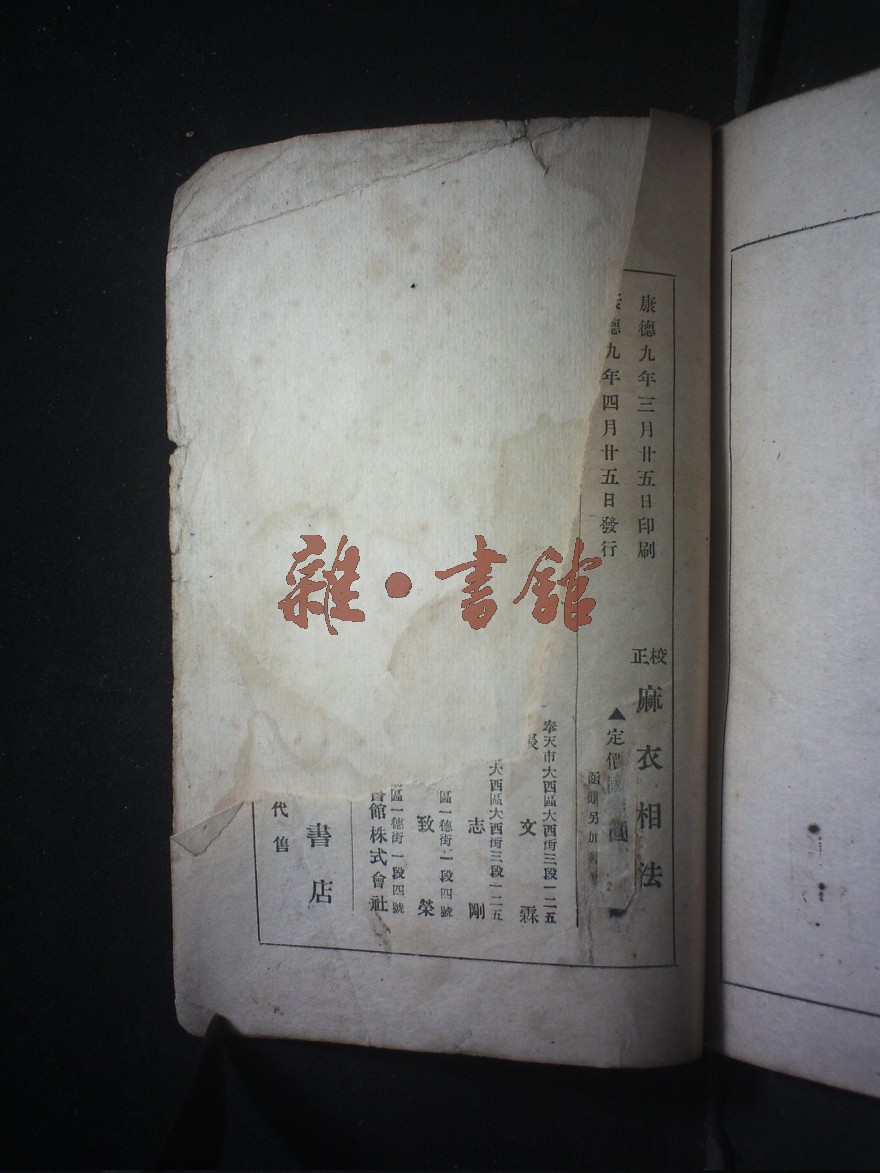 康德九年三月廿五日印刷
德九年四月廿五日發行
校正
麻衣相法
▲定價
函購另加
奉天市大西區大西街三段一二五
吳文霖
大西區大西街三段一二五
志剛
區一德街一段四號
致榮
區一德街一段四號
書館株式會社
書店
代售
雜·書館